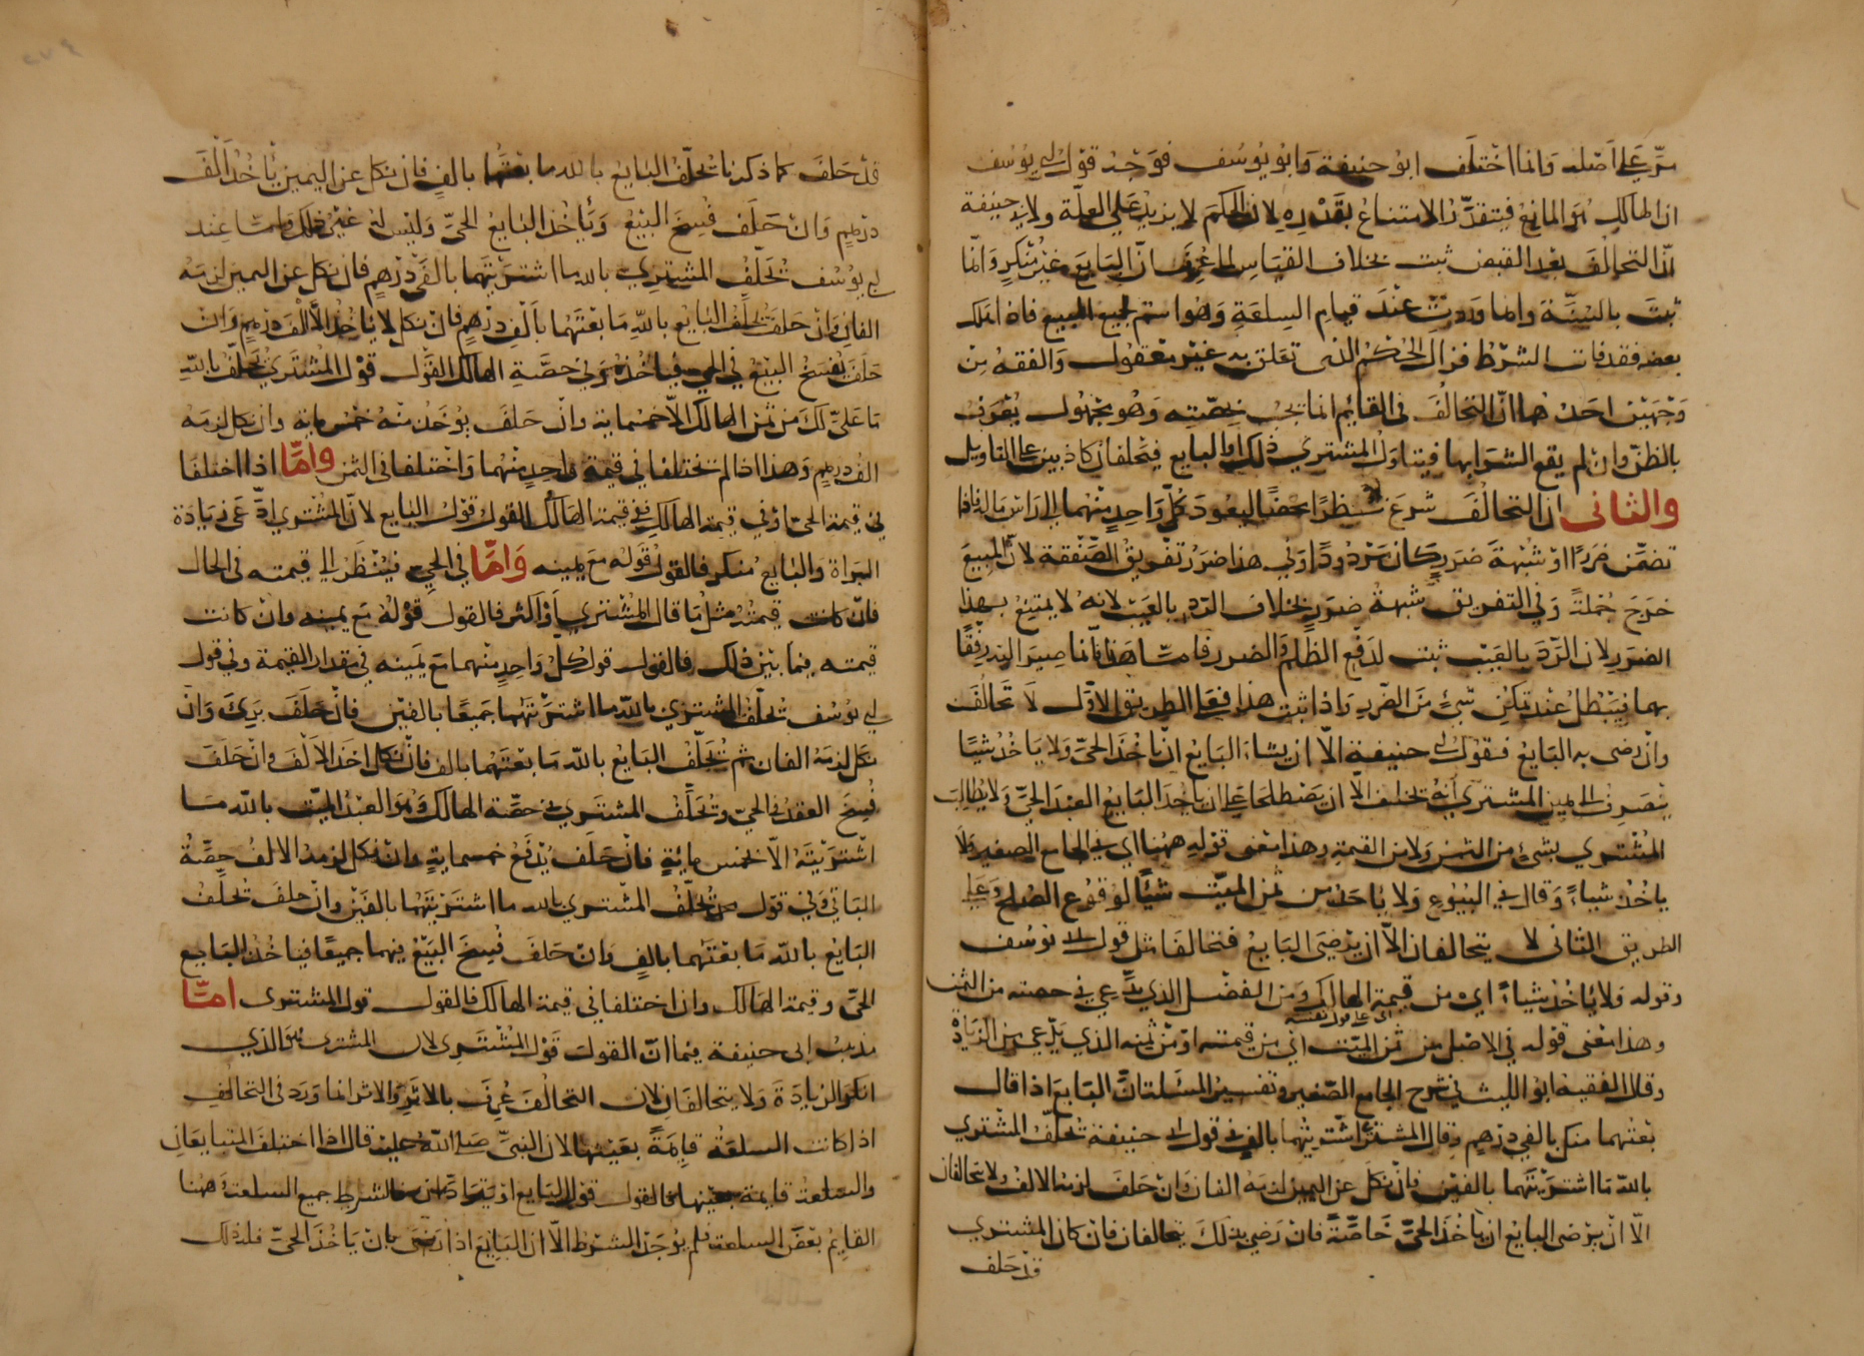 مرّ علي اصله وانما اختلف ابو حنيفة وابو يوسف فوجه قول ابي يوسف
ان الهالك هو المانع فيتقدّر الامتناع بقدره لان الحكم لا يزيد علي العلّة ولابي حنيفة
انّ التحالف بعد القبض ثبت بخلاف القياس لما عرف انّ البايع غير منكر وانّما
ثبت بالسّنّة وانما وردت عند قيام السلعة وهو اسم لجميع المبيع فاذا هلك
بعضه فقد فات الشرط فزال الحكم الذى تعلق به غير معقول والفقه من
وجهين احدهما انّ التحالف في القايم انما يجب بحصّته وهو مجهول يعرف
بالظنّ وان لم يقع الشرا بها فيتناول المشتري ذلك او البايع فيحلفان كاذبين علي التاويل
والثانى ان التحالف شرع نظرًا محضًا ليعود كلّ واحد منهما الي راس ماله فاذا
تضمّن ضررًا او شبهة ضرر كان مردودًا وفي هذا ضرر تفريق الصّفقة لانّ المبيع
خرج جملةً وفي التفريق شبهة ضرر بخلاف الرد بالعيب لانه لا يمتنع بهذا
الضرر لان الرّد بالعيب ثبت لدفع الظلم والضرر فامّا هذا فانّما صير اليه رفقًا
بهما فيبطل عند تمكّن شيء من الضّرر واذا ثبت هذا فعلي الطريق الاوّل لا تحالف
وان رضى به البايع فقول ابي حنيفة الّا ان يشاء البايع ان ياخذ الحيّ ولا ياخذ شيًا
ينصرف الي يمين المشتري انه يحلف الّا ان يصطلحا علي ان ياخذ البايع العبد الحيّ ولا يطالب
المشتري بشيء من الثمن ولا من القيمة وهذا معنى قوله ههنا اي في الجامع الصغير ولا
ياخذ شياءً وقال في البيوع ولا ياخذ من ثمن الميّت شيئًا لوقوع الصلح وعلي
الطريق الثانى لا يتحالفان الّا ان يرضى البايع فتحالفا مثل قول ابي يوسف
وقوله ولا ياخذ شياءً اي من قيمة الهالك ومن الفضل الذي يدّعي في حصته من الثمن
اى علي قول نفسه
وهذا معنى قوله في الاصل من ثمن الميّت اي من قيمته او من ثمنه الذي يدّعي من الزيادة
وقال الفقيه ابو الليث في شرح الجامع الصّغير وتفسير المسئلة انّ البايع اذا قال
بعتهما منك بالفي درهم وقال المشترى اشتريتهما بالف في قول ابي حنيفة تحلّف المشتري
بالله ما اشتريتهما بالفين فان نكل عن اليمين لزمه الفان وان حلف لزمه الالف ولا يتحالفان
الّا ان يرضى البايع ان ياخذ الحيّ خاصّةً فان رضي بذلك يتحالفان فان كان المشتري
قد حلف
قد حلف كما ذكرنا تحلّف البايع بالله ما بعتهما بالف فان نكل عن اليمين ياخذ الف
درهم وان حلف فسخ البيع وياخذ البايع الحيّ وليس له غير ذلك وامّا عند
ابي يوسف تحلّف المشتري بالله ما اشتريتهما بالفي درهم فان نكل عن اليمين لزمه
الفان وان حلف تحلّف البايع بالله ما بعتهما بالف درهم فان نكل لا ياخذ الّا الف درهم وان
حلف يفسخ البيع في الحي فياخذه وفي حصّة الهالك القول قول المشتري تحلّف بالله
ما عليّ لك من ثمن الهالك الّا خمسماية وان حلف يوخذ منه خمس ماية وان نكل لزمه
الف درهم وهذا اذا لم تختلفا في قيمة واحد منهما واختلفا فى الثمن وامّا اذا اختلفا
في قيمة الحيّ او في قيمة الهالك ففي قيمة الهالك القول قول البايع لانّ المشتري ادّعى زيادة
البراة والبايع منكر فالقول قوله مع يمينه وامّا في الحي فينظر الي قيمته فى الحال
فان كانت قيمته مثل ما قال المشتري او اكثر فالقول قوله مع يمينه وان كانت
قيمته فيما بين ذلك فالقول قول كل واحد منهما مع يمينه في مقدار القيمة وفي قول
ابي يوسف تحلّف المشتري بالله ما اشتريتهما جميعًا بالفين فان حلف بري وان
نكل لزمه الفان ثم تحلّف البايع بالله ما بعتهما بالف فان نكل اخذ الالف وان حلف
فسخ العقد في الحيّ وتحلّف المشتري في حصّة الهالك وهو العبد الميّت بالله مـا
اشتريته الّا بخمس مائة فان حلف يدفع خمسماية وان نكل لزمه الالف حصّة
الباقي وفي قول محمد تحلّف المشتري بالله ما اشتريتهما بالفين وان حلف تحلف
البايع بالله ما بعتهما بالف وان حلف فسخ البيع فيهما جميعًا فياخذ البايع
الحيّ وقيمة الهالك وان اختلفا في قيمة الهالك فالقول قول المشترى امّا
مذهب ابى حنيفة فيما انّ القول قول المشترى لان المشترى هو الذي
انكر الزيادة ولا يتحالفان لان التحالف عرف بالاثر والاثر انما ورد فى التحالف
اذا كانت السلعة قايمةً بعينها لان النبيّ صلى الله عليه قال اذا اختلف المتبايعان
والسلعة قايمة بعينها فالقول قول البايع او يترادّان شرط جميع السلعة ههنا
القايم بعض السلعة فلم يوجد الشرط الّا ان البايع اذا رضى بان ياخذ الحيّ فلذلك